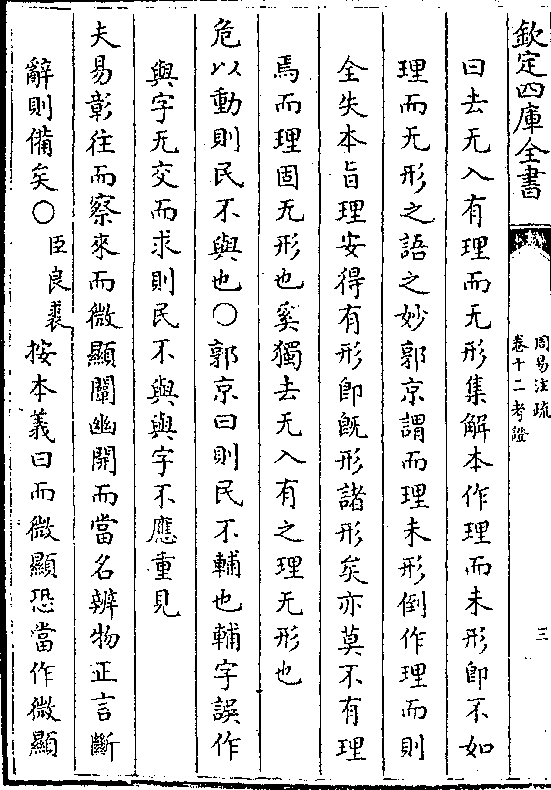 欽定四庫全書
周易注疏
卷十二考證
三
曰去无入有理而无形集解本作理而未形即不如
理而无形之語之妙郭京謂而理未形倒作理而則
全失本旨理安得有形即既形諸形矣亦莫不有理
焉而理固无形也奚獨去无入有之理无形也
危以動則民不與也〇郭京曰則民不輔也輔字誤作
與字无交而求則民不與與字不應重見
夫易彰往而察來而微顯闡幽開而當名辨物正言斷
辭則備矣〇臣良裘按本義曰而微顯恐當作微顯